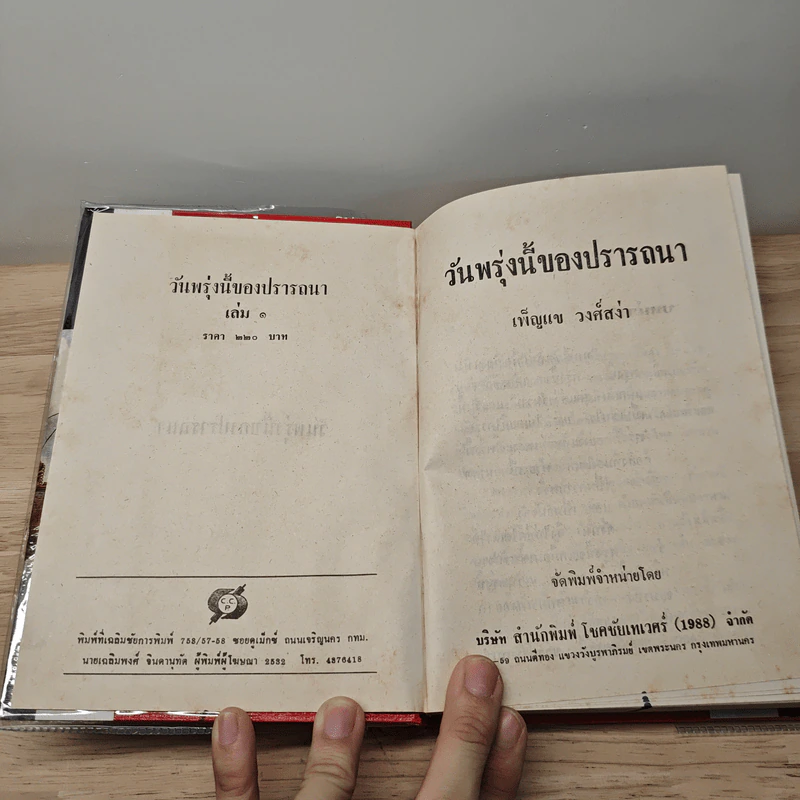 วันพรุ่งนี้ของปรารถนา
เล่ม ๑
ราคา ๒๒๐ บาท
C.C.
P.
พิมพ์ที่เฉลิมชัยการพิมพ์ 758/57-58 ซอยคูเม็กซ์ ถนนเจริญนคร กทม.
นายเฉลิมพงศ์ จินดานุทัต ผู้พิมพ์ผู้โฆษณา 2532 โทร. 4376418
วันพรุ่งนี้ของปรารถนา
เพ็ญแข วงศ์สง่า
จัดพิมพ์จำหน่ายโดย
บริษัท สำนักพิมพ์ โชคชัยเทเวศร์ (1988) จำกัด
-59 ถนนตีทอง แขวงวังบูรพาภิรมย์ เขตพระนคร กรุงเทพมหานคร